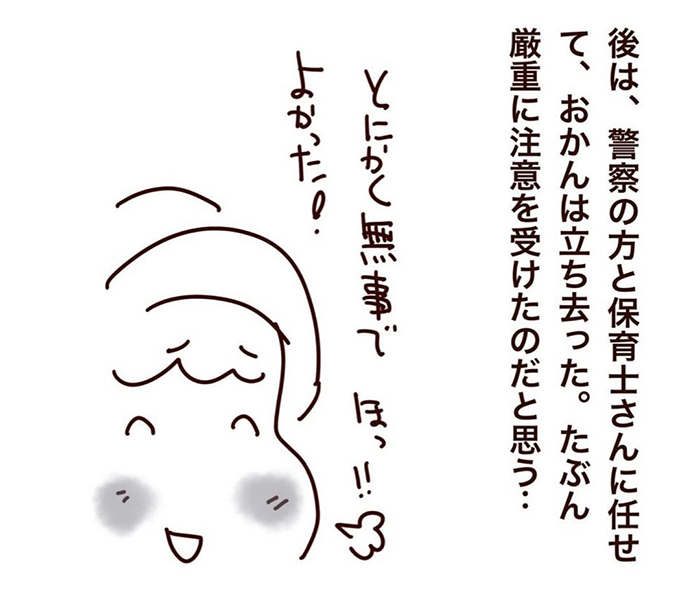 後は、警察の方と保育士さんに任せ
て、おかんは立ち去った。たぶん
厳重に注意を受けたのだと思う…
とにかく無事で
よかった!
ほっ!!